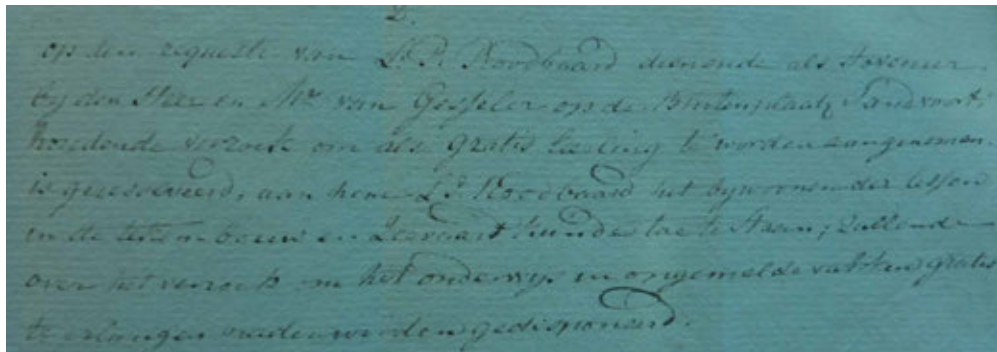 2.
op den requeste van L. P. Roodbaard dienende als Hovenier
by den Heer en Mr. van Gesseler op de Buitenplaats Sandvoort,
houdende verzoek om als gratis leeling te worden aangenomen
is geresolveerd, aan hem L. P. Roodbaard het bywoonen der lessen
in de teken bouw en kunde toe te staan; zullende
over het verzoek om het onderwys in opgemelde vakken gratis
te erlangen worden gedisponeerd.